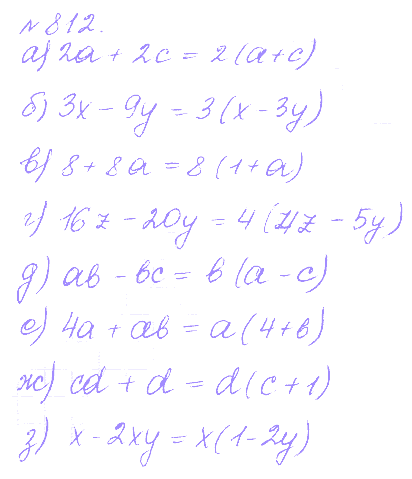 №812.
а) 2a + 2c = 2(a+c)
б) 3x - 9y = 3(x - 3y)
в) 8 + 8a = 8(1+a)
г) 16z - 20y = 4(4z - 5y)
д) ab - bc = b(a - c)
е) 4a + ab = a(4+b)
ж) cd + d = d(c+1)
з) x - 2xy = x(1-2y)